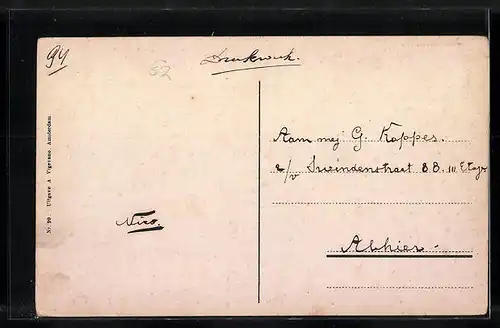 94
52
Drukwerk.
Nr. 90 Uitgave A Vigevano. Amsterdam
Aan mej G. Kappes.
v/d Swindenstraat 88 III Etage
Nico.
Alhier.-